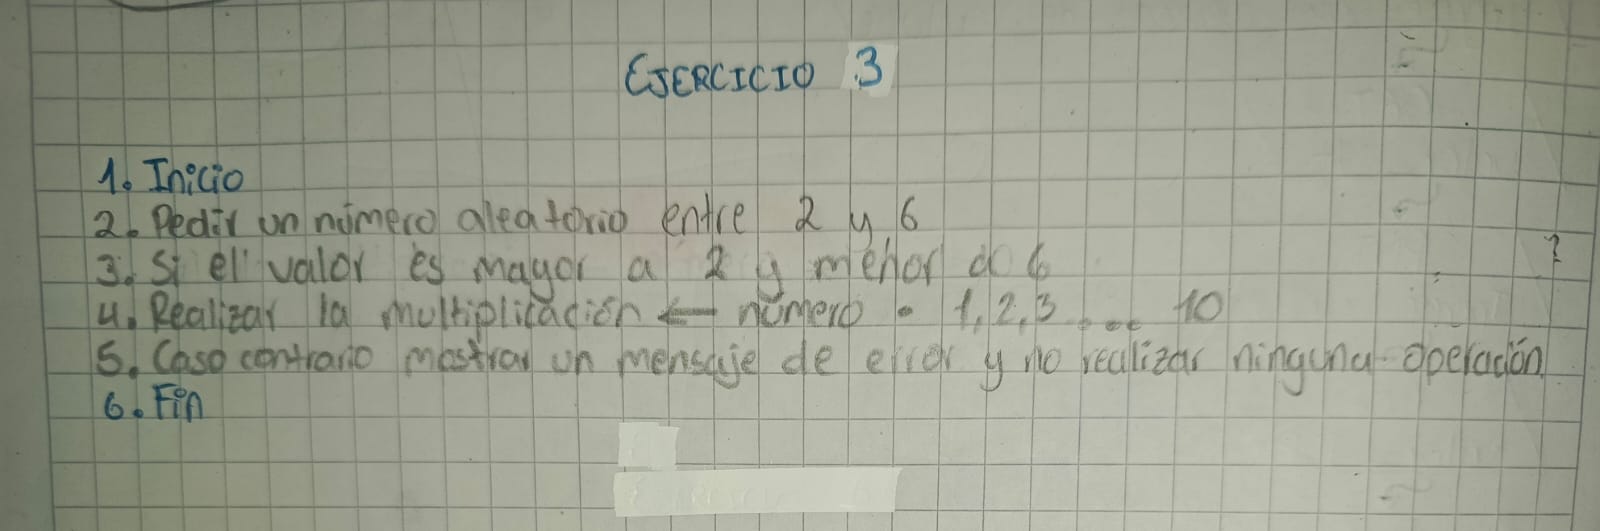 EJERCICIO 3
1. Inicio
2. Pedir un número aleatorio entre 2 y 6
3. Si el valor es mayor a 2 y menor a 6
?
4. Realizar la multiplicación ← número • 1, 2, 3 .... 10
5. Caso contrario mostrar un mensaje de error y no realizar ninguna operación.
6. Fin